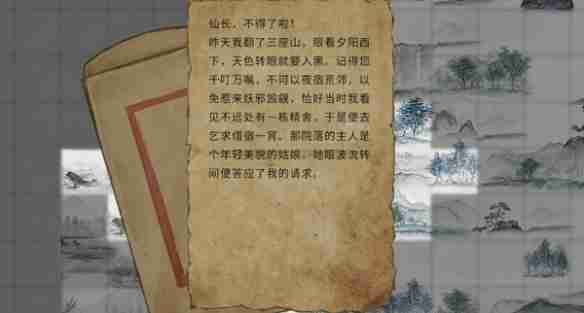 仙长，不得了啦！
昨天我翻了三座山，眼看夕阳西
下，天色转眼就要入黑。记得您
千叮万嘱，不可以夜宿荒郊，以
免惹来妖邪觊觎，恰好当时我看
见不远处有一栋精舍，于是便去
乞求借宿一宵。那院落的主人是
个年轻美貌的姑娘，她眼波流转
间便答应了我的请求。